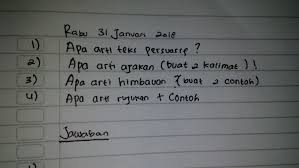 Rabu 31 Januari 2018
1) Apa arti teks persuasif ?
2) Apa arti ajakan (buat 2 kalimat) !
3) Apa arti himbauan ? (buat 2 contoh)
4) Apa arti rujukan + Contoh
Jawaban